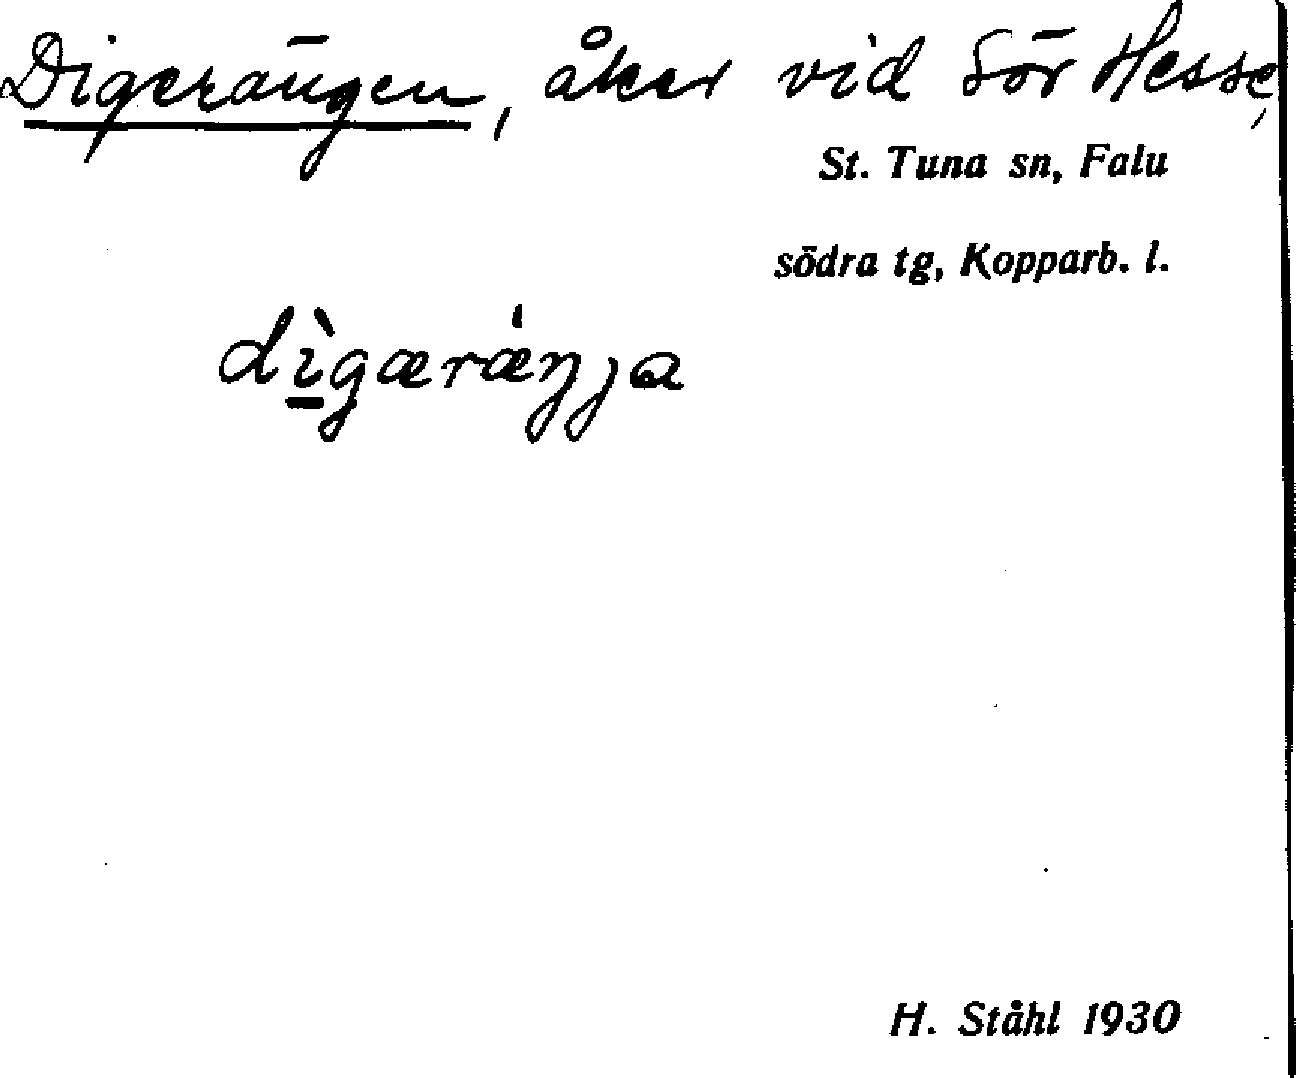 Digerängen, åker vid Sör Hesse,
St. Tuna sn, Falu
södra tg, Kopparb. l.
dì̱gærǽŋja
H. Ståhl 1930